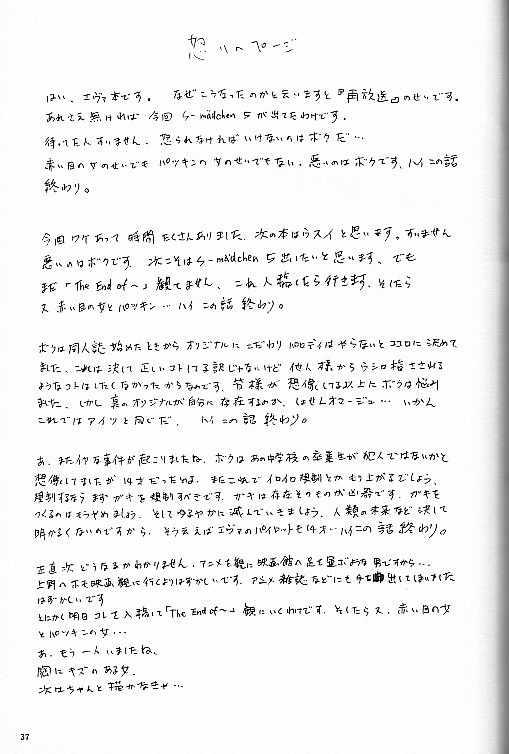 怒りのページ
はい、エヴァ本です。 なぜこうなったのかと云いますと『再放送』のせいです。
あれさえ無ければ 今回 S-mädchen 5 が出てたわけです。
待ってた人すいません、怒られなければいけないのはボクだ…
赤い目の女のせいでも パツキンの女のせいでもない、悪いのはボクです、ハイこの話
終わり。
今回ワケあって 時間たくさんありました、次の本はうスイと思います。すいません
悪いのはボクです、次こそは S-mädchen 5 出したいと思います、でも
まだ「The End of〜」観てません、これ入稿したら行きます、そしたら
又 赤い目の女とパツキン… ハイ この話 終わり。
ボクは同人誌始めたときから オリジナルにこだわり パロディはやらないとココロに決めて
ました、これは決して正しいコト してる訳じゃないけど 他人様から うしロ指さされる
ようなコトはしたくなかったからなのです。皆様が想像してる以上にボクは悩み
ました、しかし真のオリジナルが自分に存在するのか、しょせんオマージュ… いかん
これではアイツと同じだ、 ハイ この話 終わり。
あ、また 事件が起こりましたね、ボクは あの中学校の卒業生が犯人ではないかと
想像してましたが 14才だったとは、またこれで イロイロ規制とか もり上がるでしょう、
規制するなら まず ガキを規制すべきです、ガキは存在そのものが凶器です、ガキを
つくるのはもうやめましょう、そしてゆるやかに滅んでいきましょう、人類の未来など決して
明かるくないのですから、そう云えばエヴァのパイロットも14才…ハイこの話終わり。
正直次どうなるかわかりません、アニメを観に映画館へ足を運ぶような男ですから…
上野へホモ映画観に行くよりはずかしいです、アニメ雑誌などにも手を出してしまいました
はずかしいです
とにかく明日コレを入稿して「The End of〜」観にいくわけです、そしたら又、赤い目の女
とパツキンの女…
あ、もう一人いましたね、
胸にキズのある女、
次はちゃんと描かなきゃ…
37